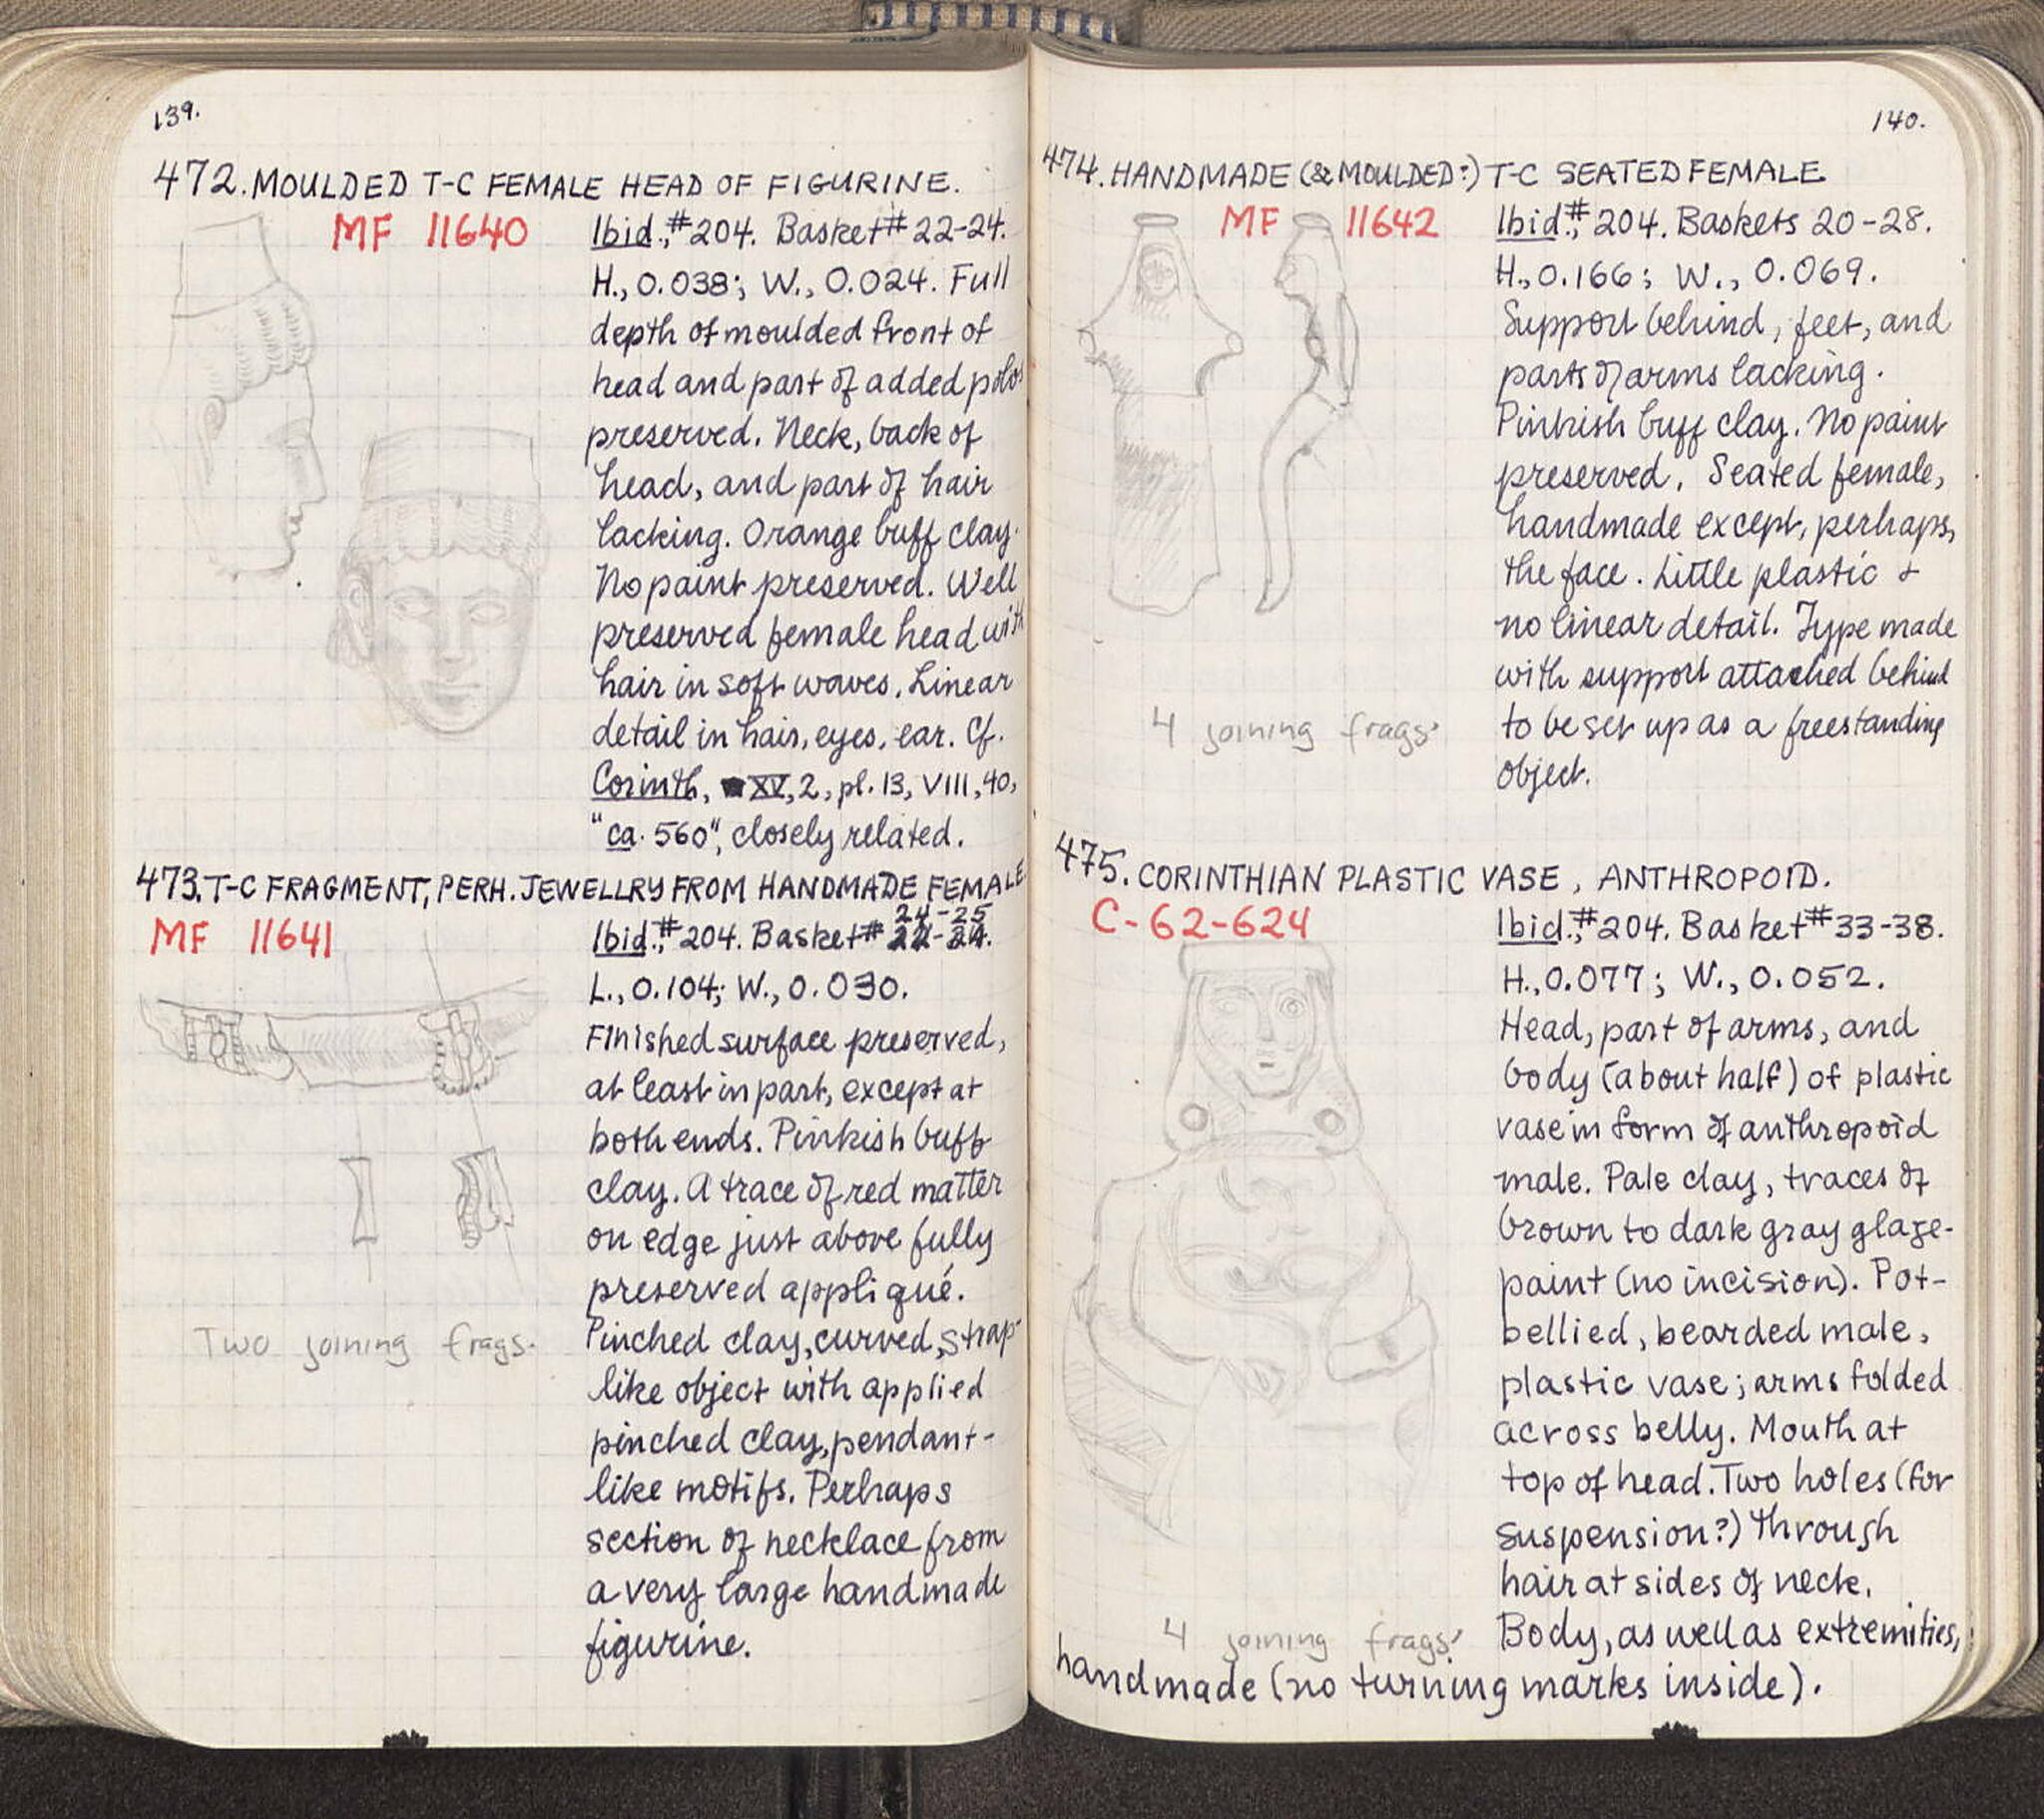 139.
472. MOULDED T-C FEMALE HEAD OF FIGURINE.
MF 11640
Ibid., #204. Basket # 22-24.
H., 0.038; W., 0.024. Full
depth of moulded front of
head and part of added polos
preserved. Neck, back of
head, and part of hair
lacking. Orange buff clay.
No paint preserved. Well
preserved female head with
hair in soft waves. Linear
detail in hair, eyes, ear. Cf.
Corinth, XV, 2, pl. 13, VIII, 40,
"ca. 560", closely related.
473. T-C FRAGMENT, PERH. JEWELLRY FROM HANDMADE FEMALE
MF 11641
24-25
Ibid., #204. Basket # 22-24.
L., 0.104; W., 0.030.
Finished surface preserved,
at least in part, except at
both ends. Pinkish buff
clay. A trace of red matter
on edge just above fully
preserved appliqué.
Two joining frags.
Pinched clay, curved, strap-
like object with applied
pinched clay, pendant-
like motifs. Perhaps
section of necklace from
a very large handmade
figurine.
140.
474. HANDMADE (& MOULDED?) T-C SEATED FEMALE
MF 11642
Ibid., #204. Baskets 20-28.
H., 0.166; W., 0.069.
Support behind, feet, and
parts of arms lacking.
Pinkish buff clay. No paint
preserved. Seated female,
handmade except, perhaps,
the face. Little plastic &
no linear detail. Type made
with support attached behind
4 joining frags.
to be set up as a freestanding
object.
475. CORINTHIAN PLASTIC VASE, ANTHROPOID.
C-62-624
Ibid., #204. Basket #33-38.
H., 0.077; W., 0.052.
Head, part of arms, and
body (about half) of plastic
vase in form of anthropoid
male. Pale clay, traces of
brown to dark gray glaze-
paint (no incision). Pot-
bellied, bearded male,
plastic vase; arms folded
across belly. Mouth at
top of head. Two holes (for
suspension?) through
hair at sides of neck.
4 joining frags.
Body, as well as extremities,
handmade (no turning marks inside).